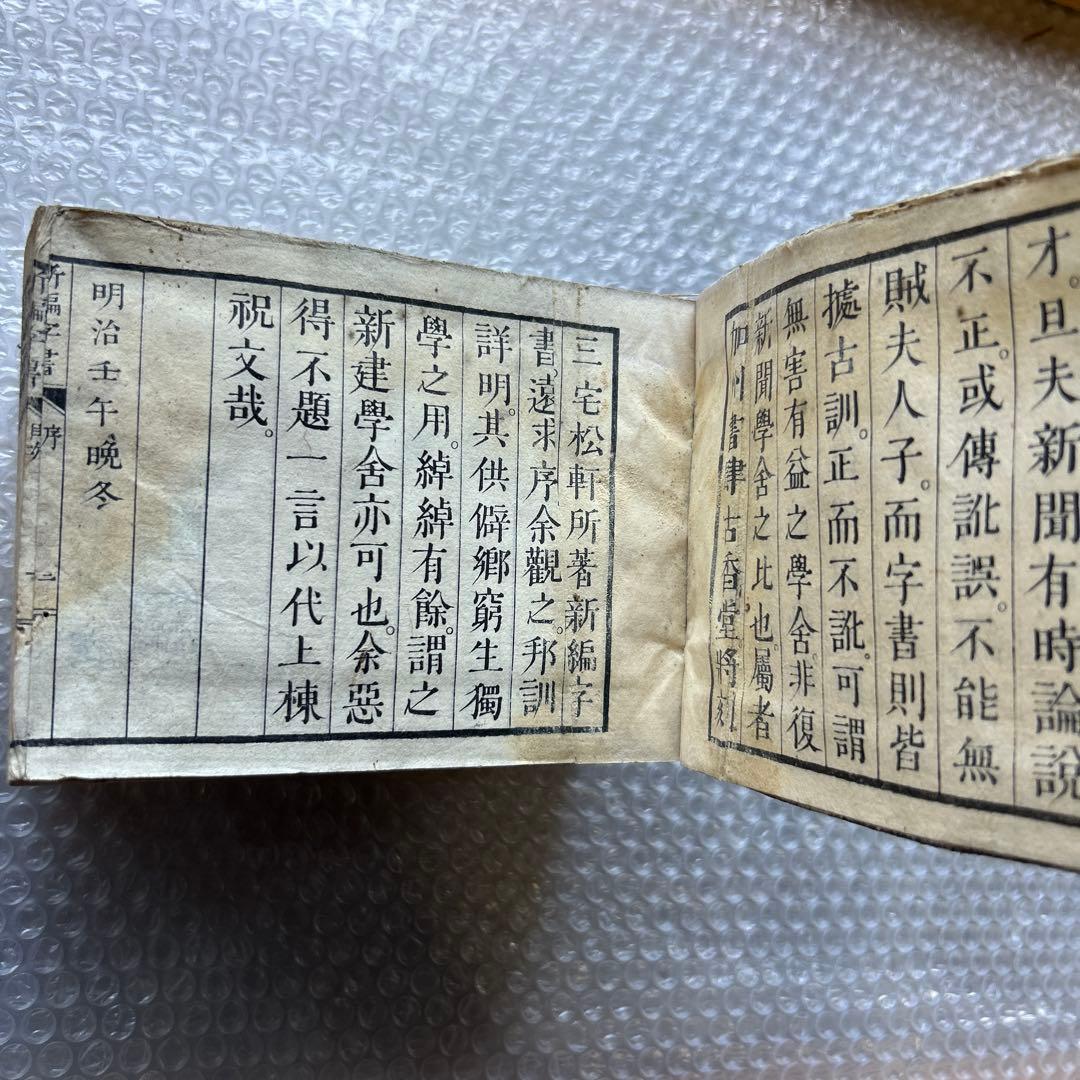 才。且夫新聞有時論說
不正。或傳訛誤。不能無
賊夫人子。而字書則皆
據古訓。正而不訛。可謂
無害有益之學舍。非復
新聞學舍之比也。屬者
加州書肆古香堂將刻
三宅松軒所著新編字
書。遠求序余觀之。邦訓
詳明。其供僻鄉窮生獨
學之用。綽綽有餘。謂之
新建學舍亦可也。余惡
得不題一言以代上棟
祝文哉。
明治壬午晚冬
新編字書 序